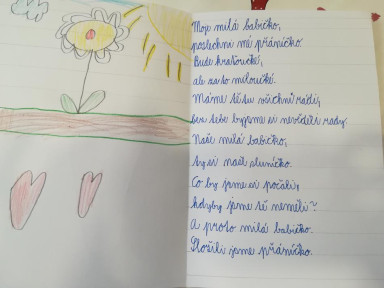 Moje milá babičko,
poslechni mé přáníčko.
Bude kratoučké,
ale za to miloučké.
Máme tě tu všichni rádi,
bez tebe bysme si nevěděli rady.
Naše milá babičko,
ty si naše sluníčko.
Co by jsme si počali,
kdyby jsme tě neměli?
A proto milá babičko.
Složili jsme přáníčko.